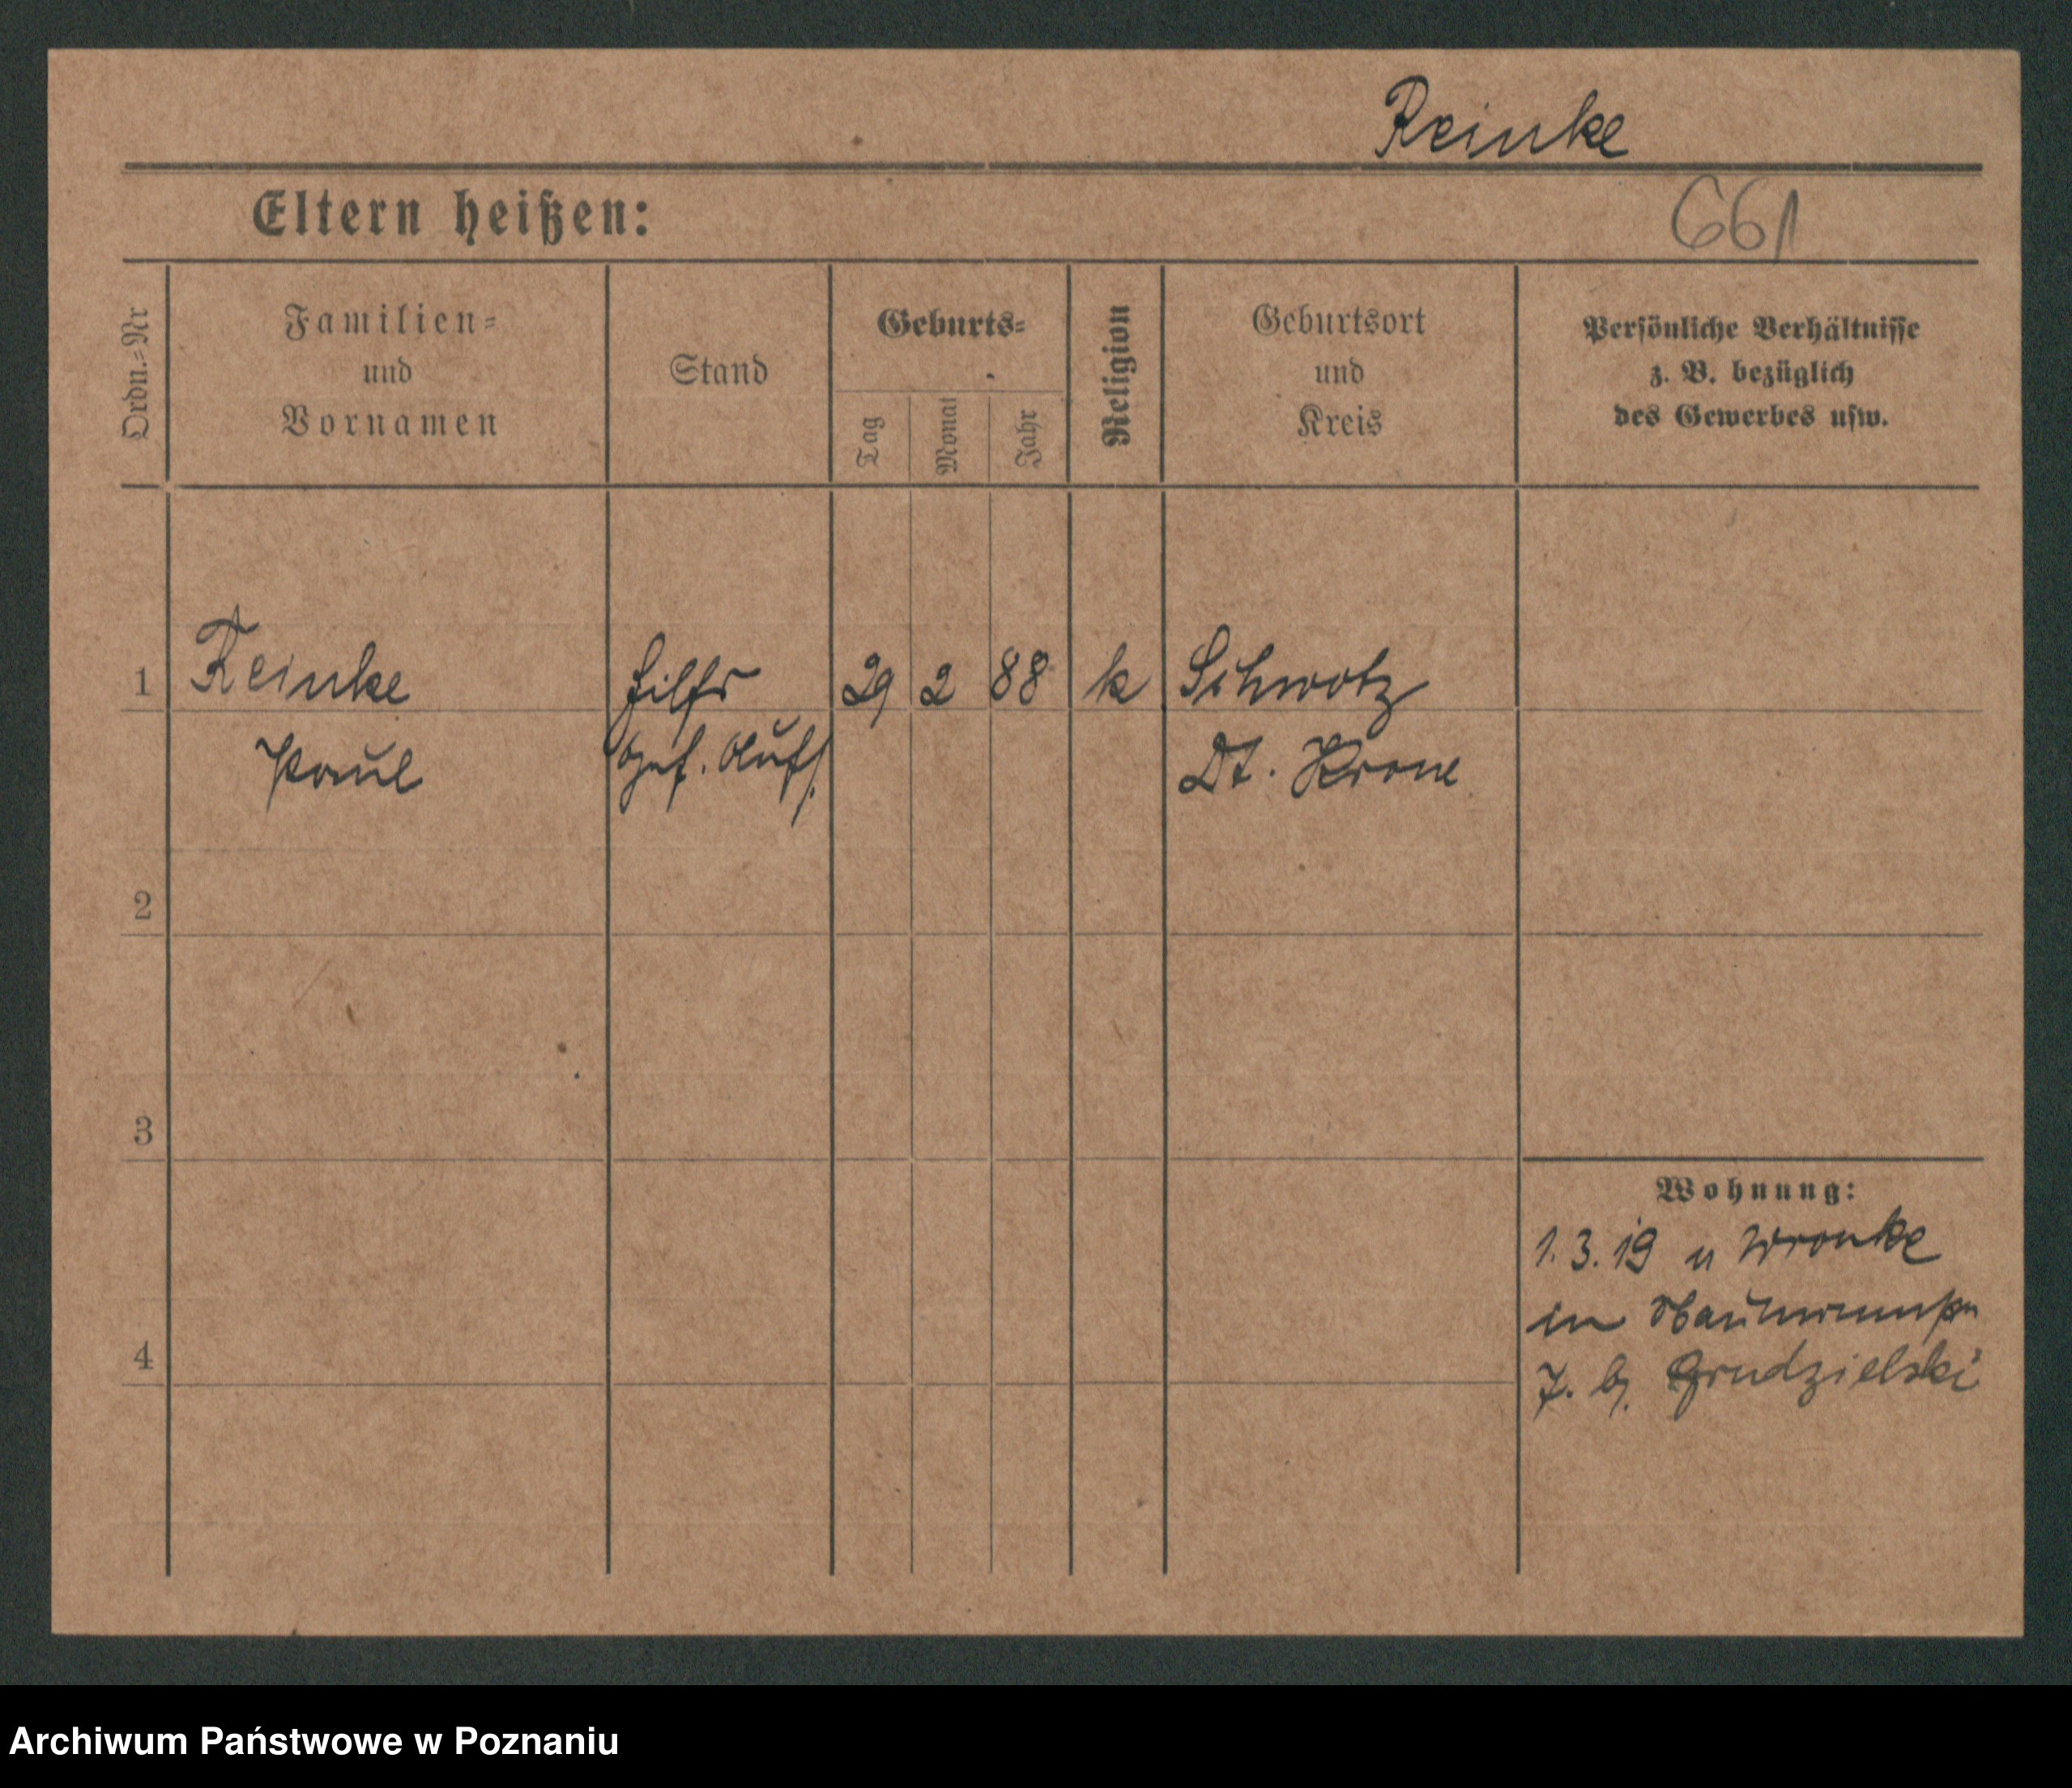 Reinke
Eltern heißen:
661
Ordn.=Nr
Familien=
und
Vornamen
Stand
Geburts=
Tag
Monat
Jahr
Religion
Geburtsort
und
Kreis
Persönliche Verhältnisse
z. B. bezüglich
des Gewerbes usw.
1 Reinke Hilfs 29 2 88 k Schwotz
Paul Gef. Aufs. Dt. Krone
2
3
4
Wohnung:
1.3.19 v Wronke
in
7. b. Grudzielski
Archiwum Państwowe w Poznaniu